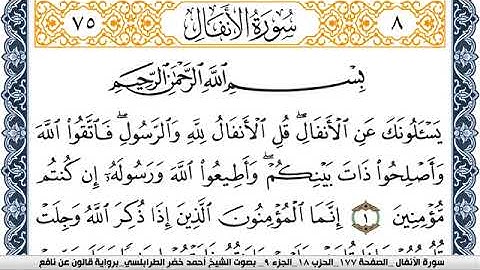 ٨ سُورَةُ الْأَنفَالِ ٧٥
بِسْمِ اللَّهِ الرَّحْمَٰنِ الرَّحِيمِ
يَسْـَٔلُونَكَ عَنِ الْأَنفَالِۖ قُلِ الْأَنفَالُ لِلَّهِ وَالرَّسُولِۖ فَاتَّقُوا اللَّهَ
وَأَصْلِحُوا ذَاتَ بَيْنِكُمْۖ وَأَطِيعُوا اللَّهَ وَرَسُولَهُۥ إِن كُنتُم
مُّؤْمِنِينَ ١ إِنَّمَا الْمُؤْمِنُونَ الَّذِينَ إِذَا ذُكِرَ اللَّهُ وَجِلَتْ
سورة الأنفال _ الصفحة ١٧٧_ الحزب ١٨_ الجزء ٩_ بصوت الشيخ أحمد خضر الطرابلسي_ برواية قالون عن نافع